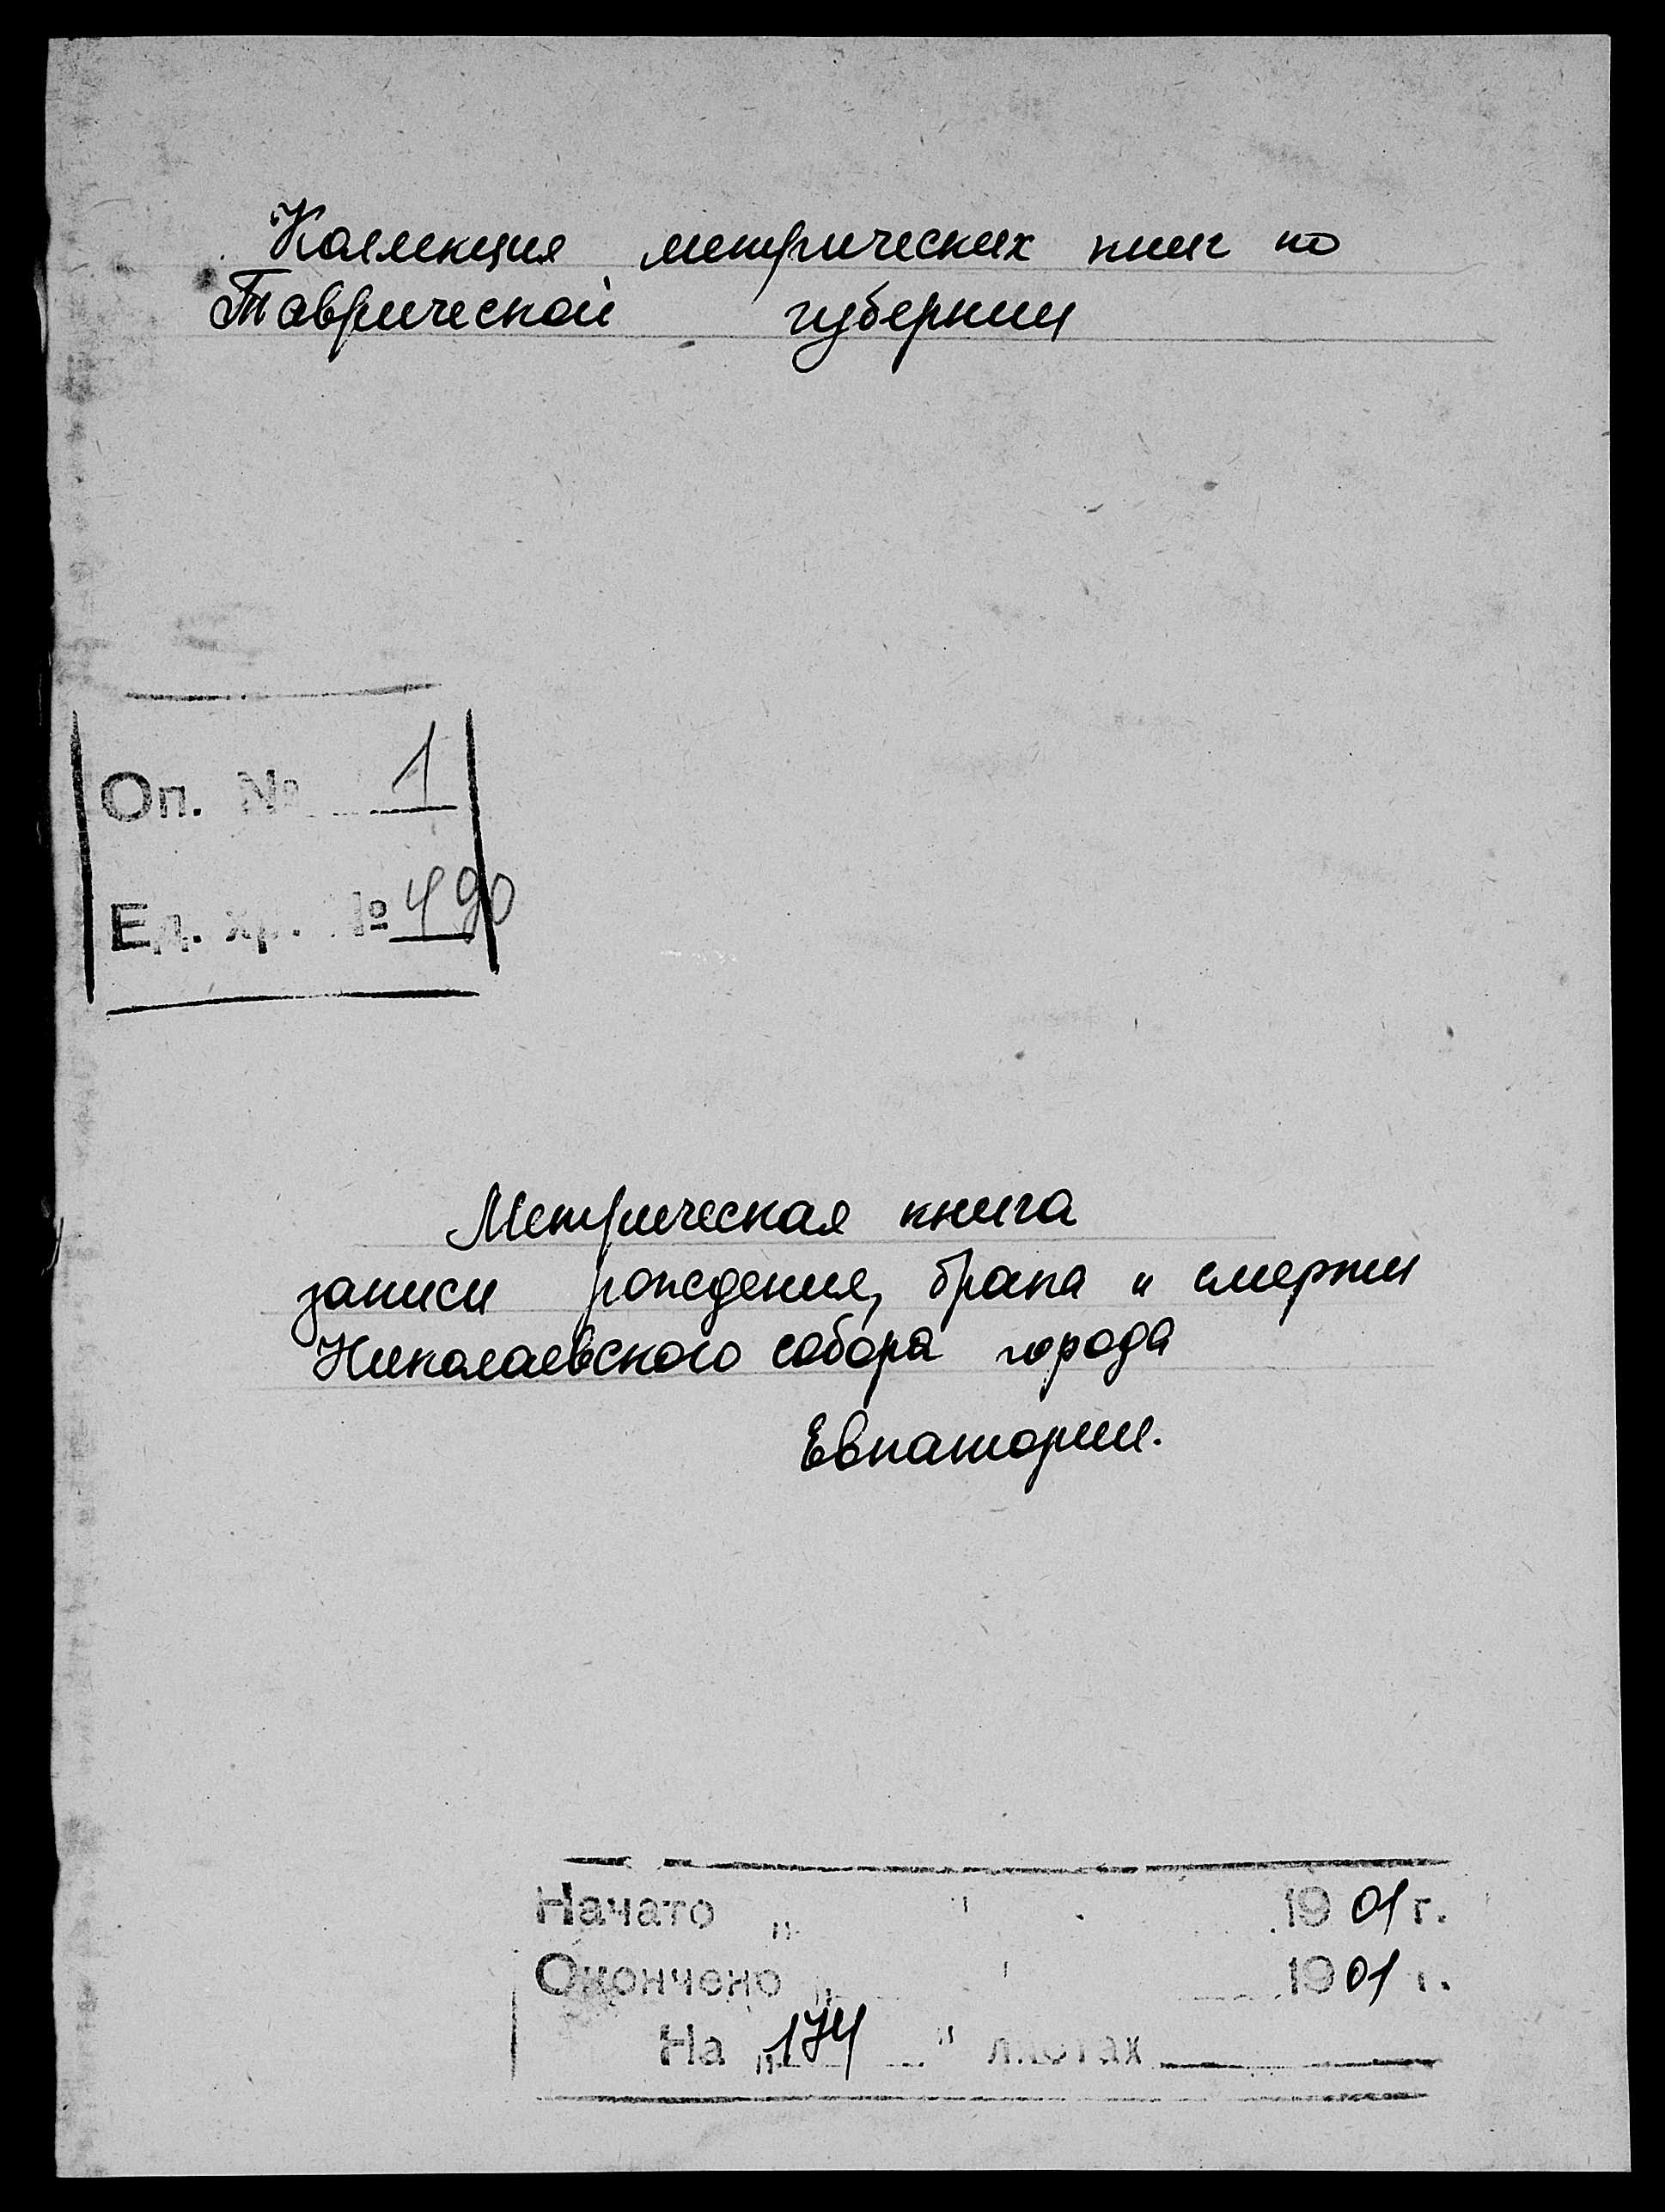 Коллекция метрических книг по
Таврической губернии
Оп. № 1
Ед. хр. № 490
Метрическая книга
записи рождения, брака и смерти
Николаевского собора города
Евпатории.
Начато „ " 1901 г.
Окончено „ " 1901 г.
На „174 " листах